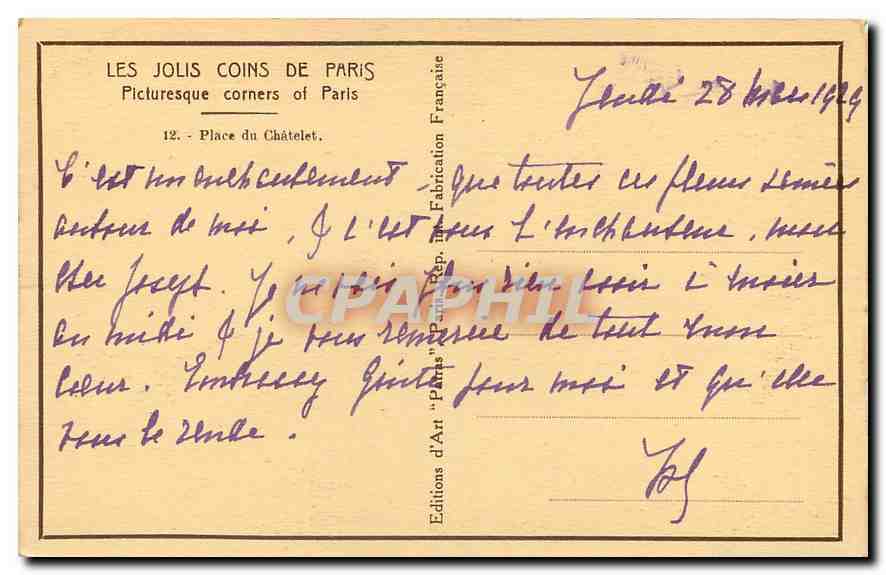 LES JOLIS COINS DE PARIS
Picturesque corners of Paris
12. - Place du Châtelet.
Editions d'Art "Patras" Paris, Rep. int. Fabrication Française
Jeudi 28 mars 1929
C'est un enchantement, que toutes ces fleurs semées
autour de moi, & c'est vous l'enchanteur, mon
cher Joseph. Je ne vais plus rien avoir à
au midi & je vous remercie de tout mon
cœur. Embrassez Ginte pour moi et qu'elle
vous le rende.
CPAPHIL